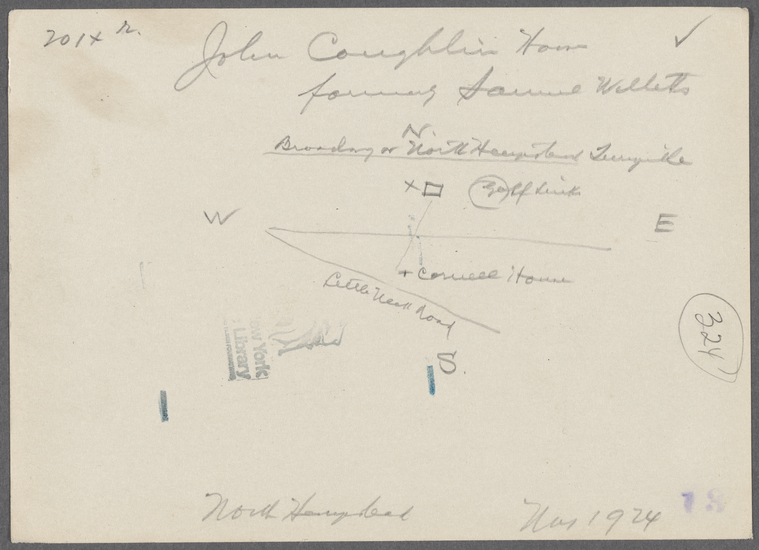 201x r.
John Coughlin House
formerly Samuel Willetts
N
Broadway or North Hempstead Turnpike
x Golf Links
W
E
+ Cornell House
Little Neck Road
S
324
New York
Library
North Hempstead
1924
13